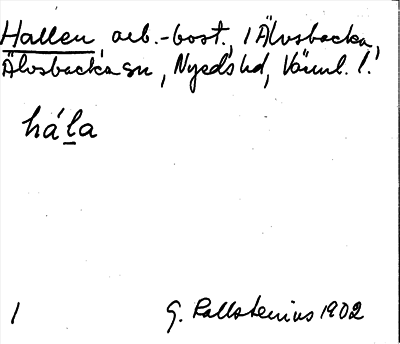 Hallen, arb.-bost., 1 Älvsbacka,
Älvsbacka sn, Nyeds hd, Värml. l.
hála
1 G. Kallstenius 1902